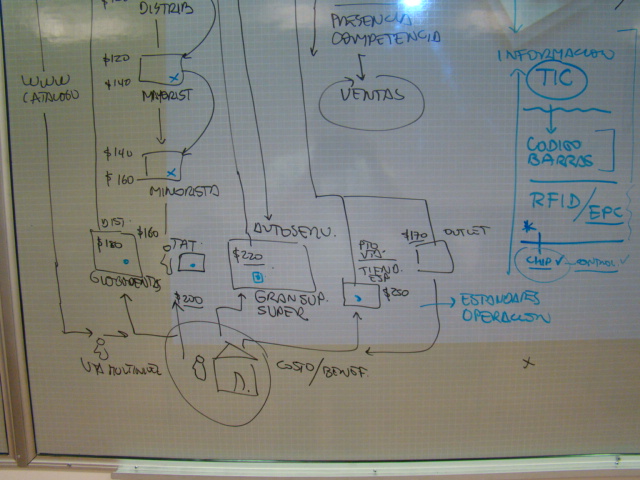 $100
DISTRIB
$120
$140
MAYORIST
WWW
CATALOGO
$140
$160
MINORISTA
DIST.
$180
$160
TAT.
$200
AUTOSERV.
$220
GRAN SUP.
SUPER
PTO
VTA
TIEND.
ESP
$250
$170
OUTLET
COSTO/BENEF.
PRESENCIA
COMPETENCIA
VENTAS
INFORMACION
TIC
CODIGO
BARRAS
RFID/EPC
CHIP
CONTROL
ESTANDARES
OPERACION